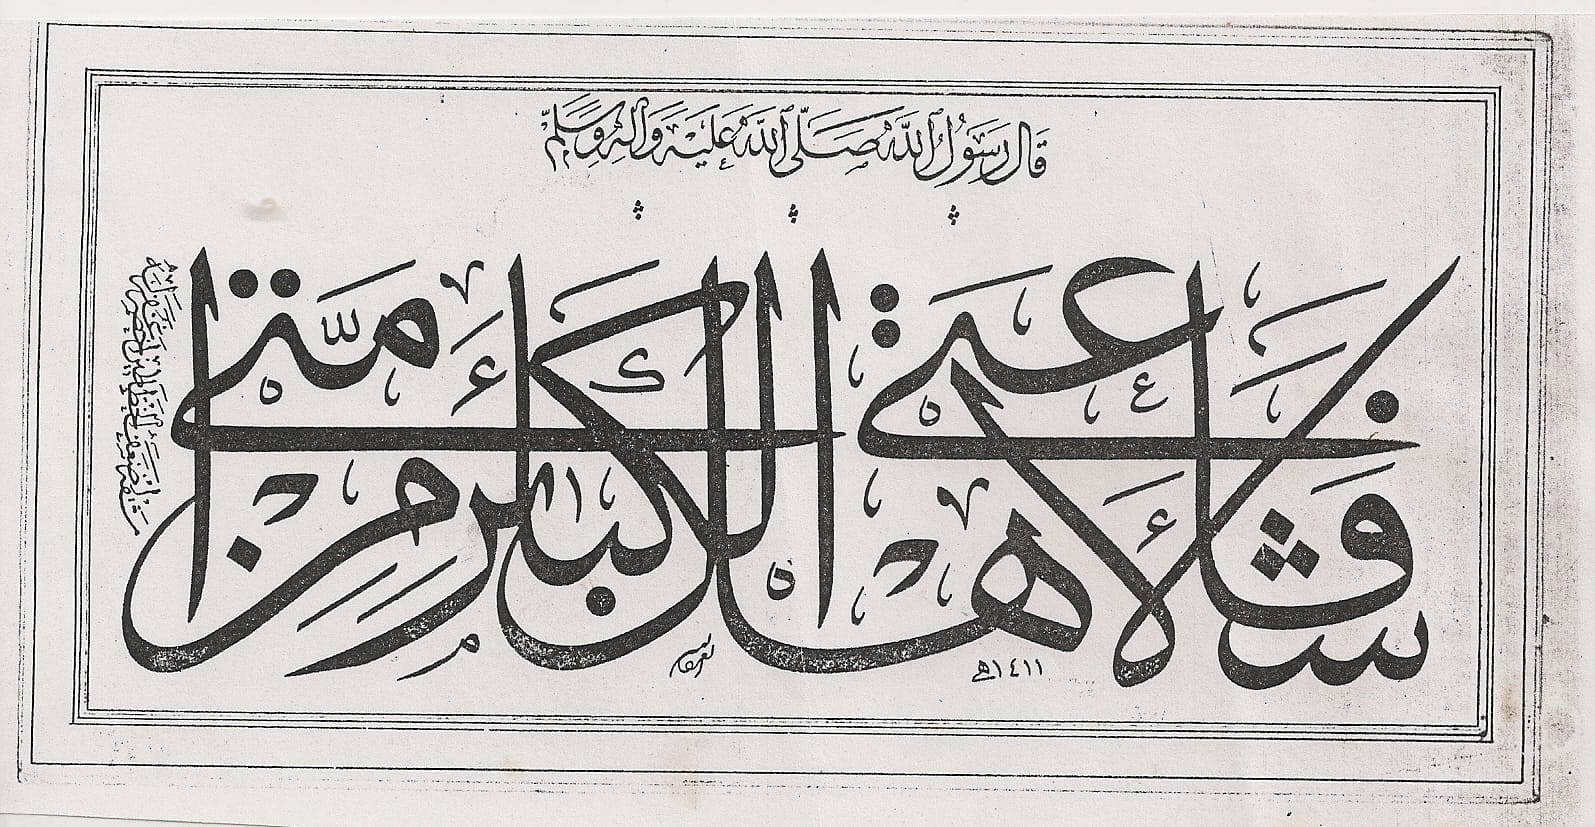 قَالَ رَسُولُ ٱللَّهِ صَلَّى ٱللَّهُ عَلَيْهِ وَآلِهِ وَسَلَّمَ
شَفَاعَتِي لِأَهْلِ الْكَبَائِرِ مِنْ أُمَّتِي
١٤١١هـ